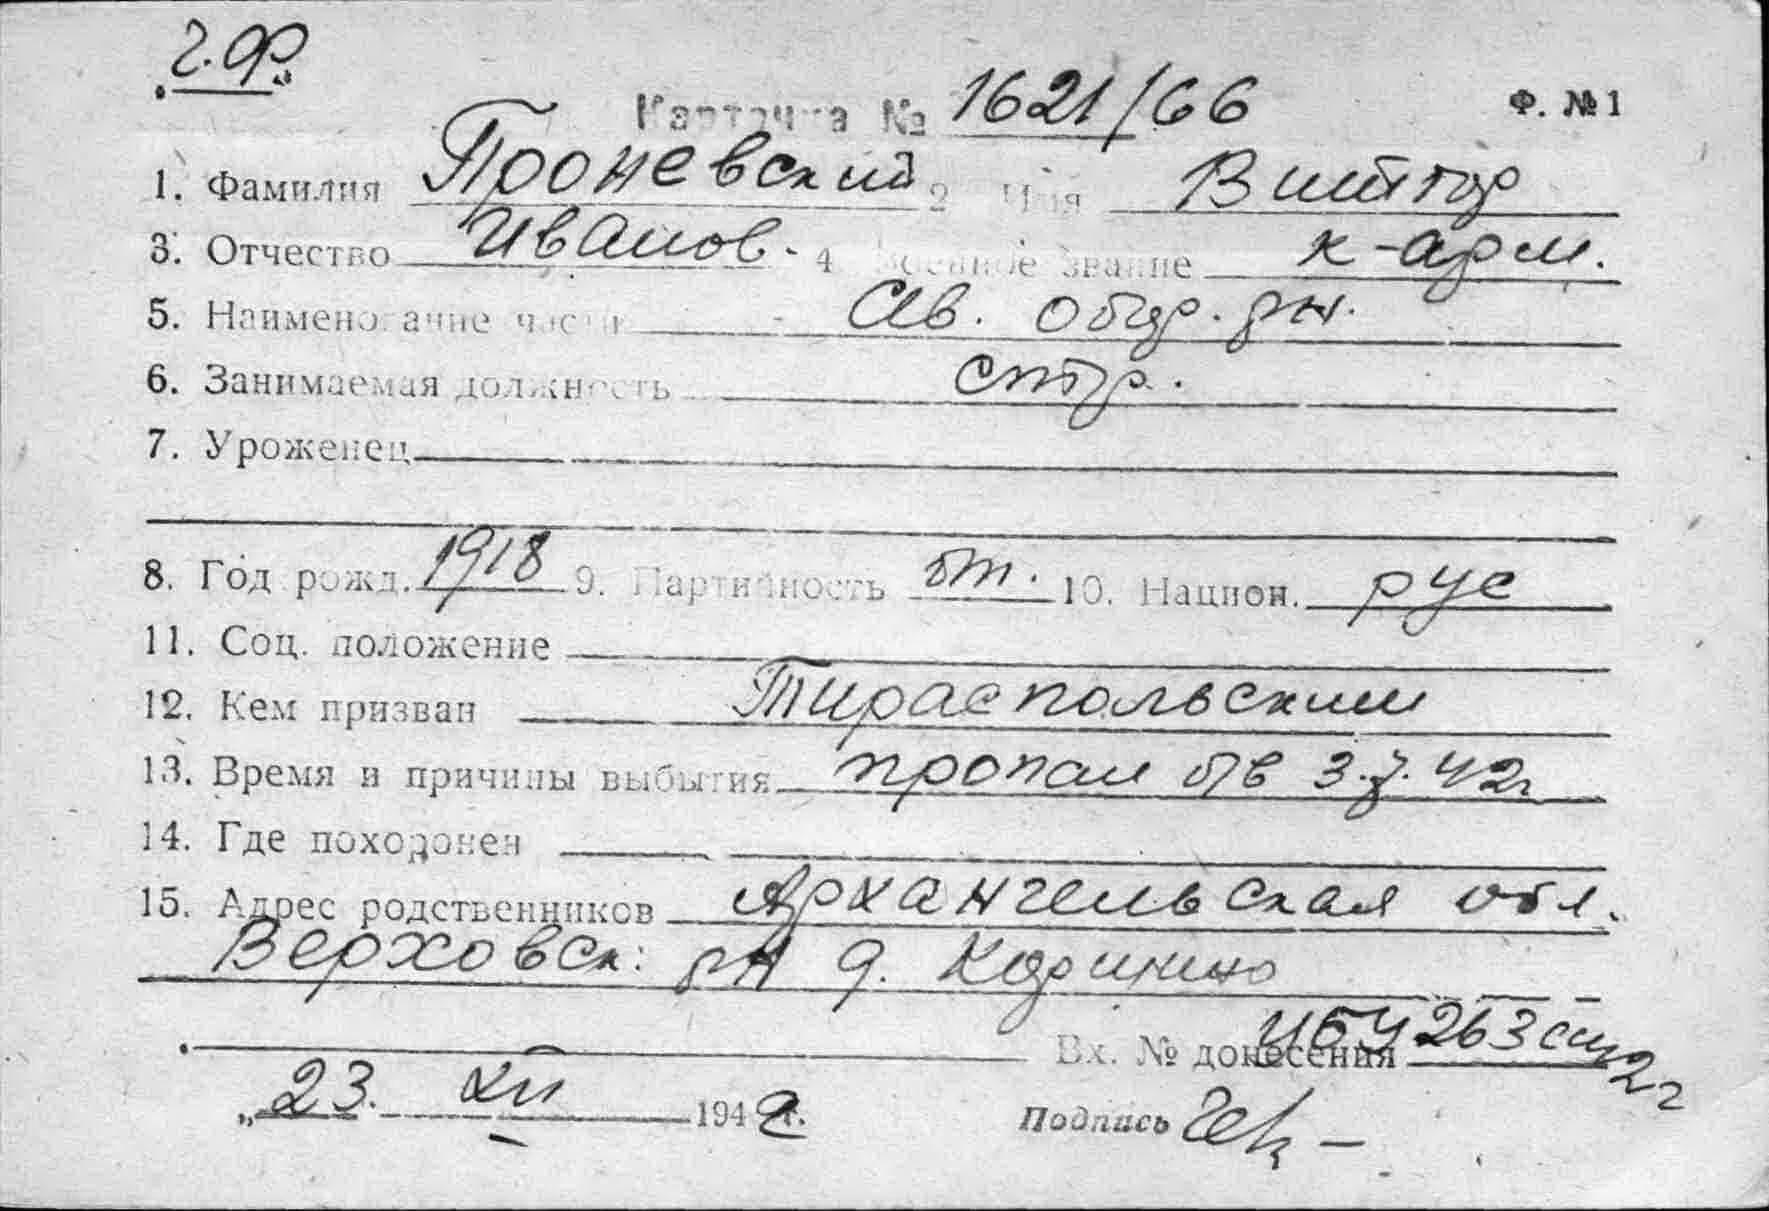 г. Ф.
Карточка № 1621/66 Ф. № 1
1. Фамилия Проневский 2. Имя Виктор
3. Отчество Иванов. 4. Военное звание к-арм.
5. Наименование части Ив.
6. Занимаемая должность стр.
7. Уроженец
8. Год рожд. 1918 9. Партийность бп. 10. Национ. рус
11. Соц. положение
12. Кем призван Тираспольским
13. Время и причины выбытия пропал б/в 3.7.42г
14. Где похоронен
15. Адрес родственников Архангельская обл.
Верховск. рн д.
Вх. № донесения
„23. XII 1942г.
Подпись